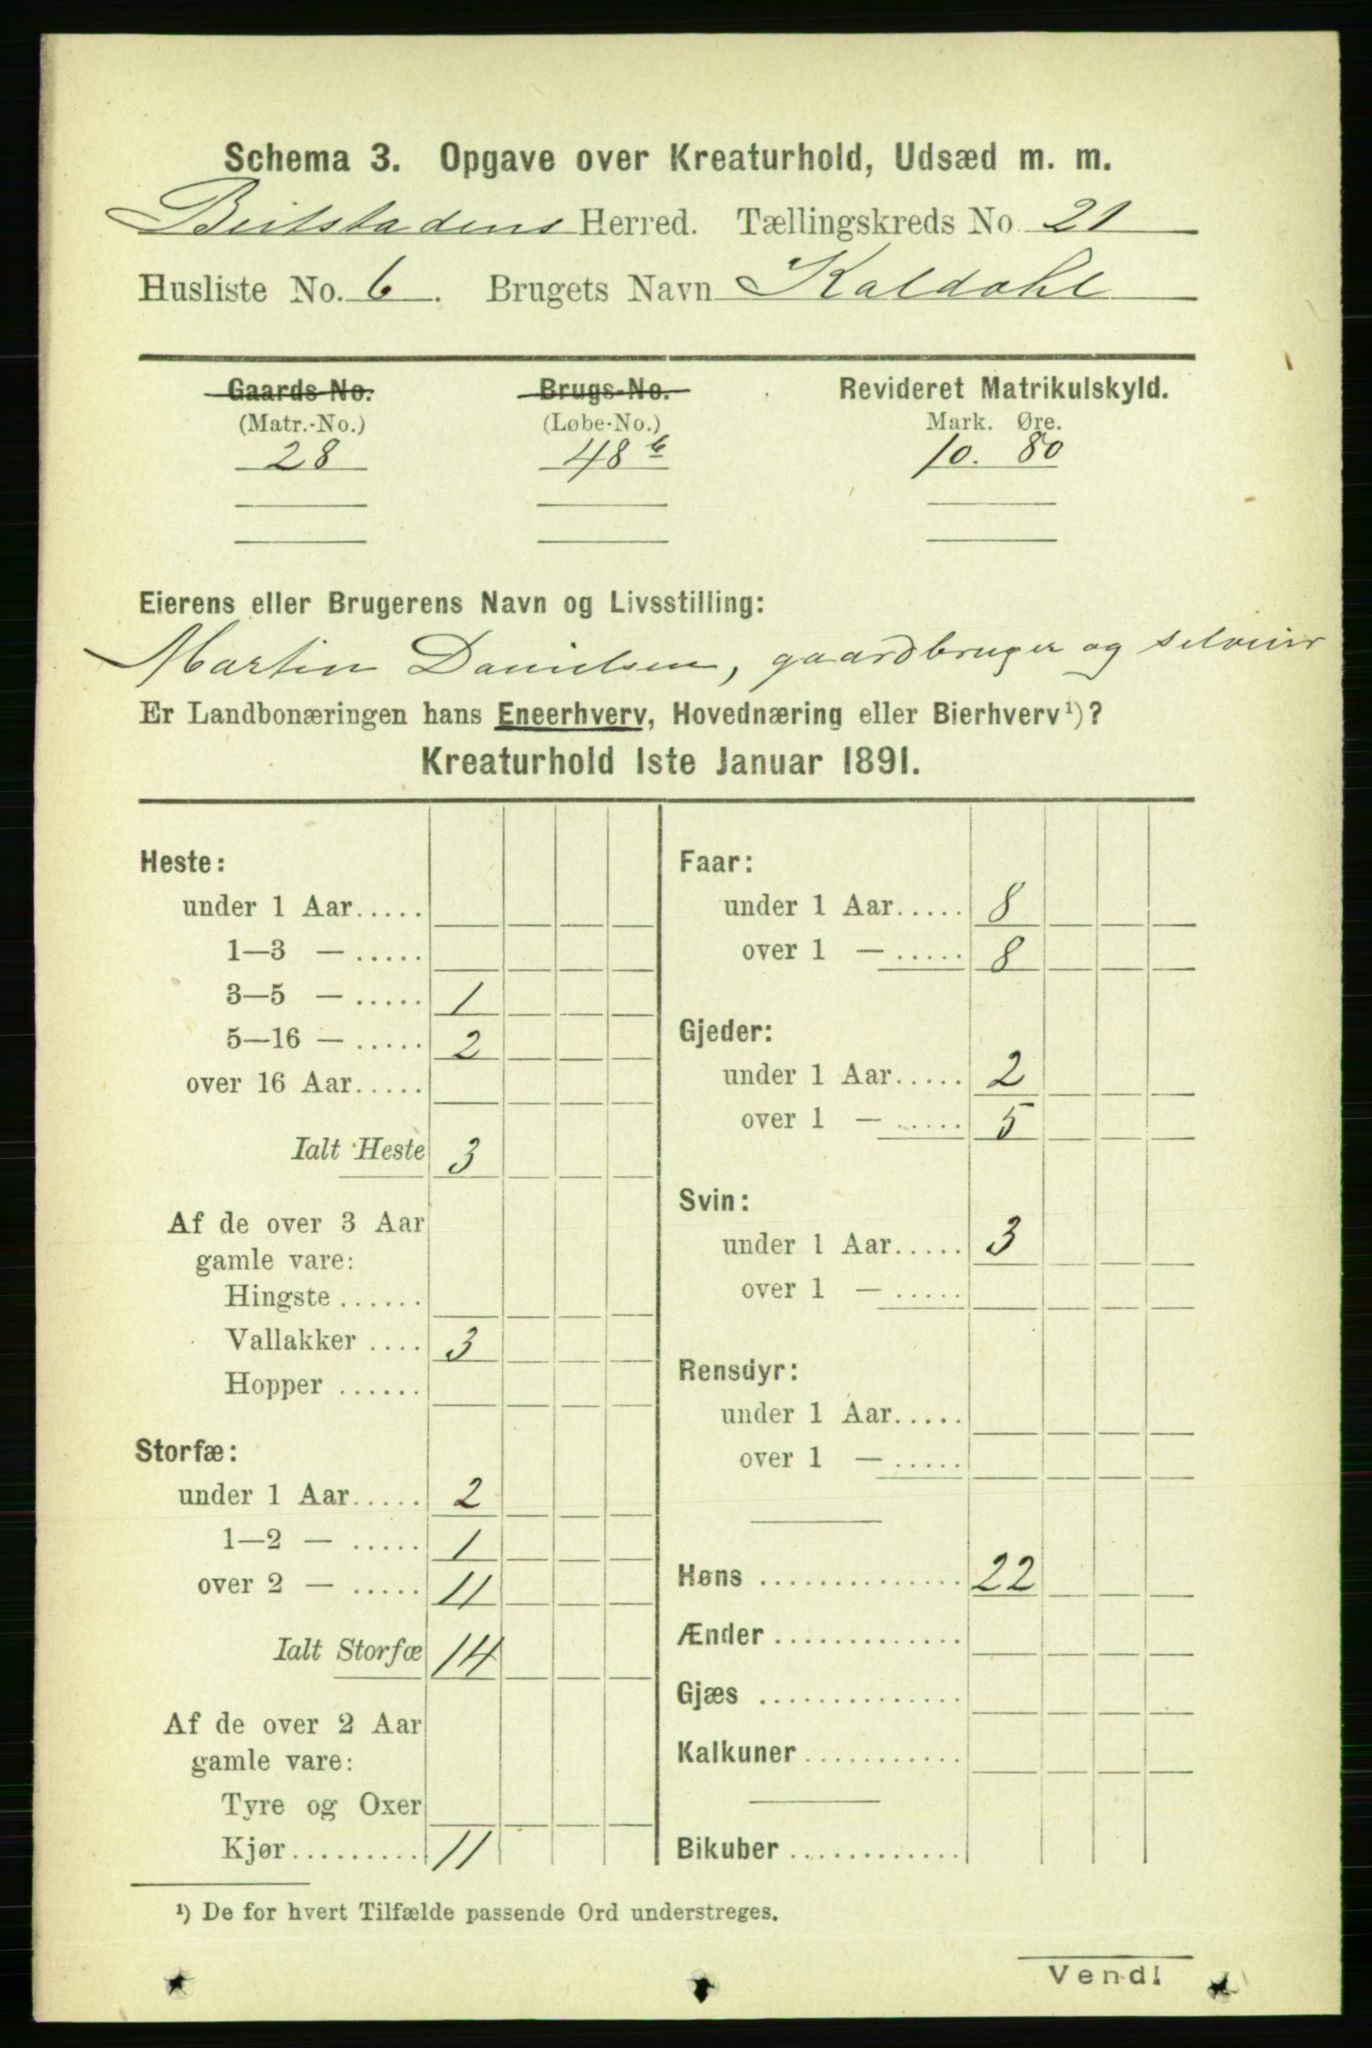 Schema 3. Opgave over Kreaturhold, Udsæd m. m.
Beitstadens Herred. Tællingskreds No. 21
Husliste No. 6. Brugets Navn Kaldahl
Gaards-No. Brugs-No. Revideret Matrikulskyld.
(Matr.-No.) (Løbe-No.) Mark. Øre.
28 48 b 10. 80
Eierens eller Brugerens Navn og Livsstilling:
Martin Danielsen, gaardbruger og selveier
Er Landbonæringen hans Eneerhverv, Hovednæring eller Bierhverv¹)?
Kreaturhold 1ste Januar 1891.
Heste:
under 1 Aar.....
1—3 — .....
3—5 — ..... 1
5—16 — ..... 2
over 16 Aar.....
Ialt Heste 3
Af de over 3 Aar
gamle vare:
Hingste ......
Vallakker .... 3
Hopper ......
Storfæ:
under 1 Aar..... 2
1—2 — ..... 1
over 2 — ..... 11
Ialt Storfæ 14
Af de over 2 Aar
gamle vare:
Tyre og Oxer
Kjør......... 11
Faar:
under 1 Aar..... 8
over 1 — ..... 8
Gjeder:
under 1 Aar..... 2
over 1 — ..... 5
Svin:
under 1 Aar..... 3
over 1 — .....
Rensdyr:
under 1 Aar.....
over 1 — .....
Høns .............. 22
Ænder .............
Gjæs ..............
Kalkuner...........
Bikuber ............
¹) De for hvert Tilfælde passende Ord understreges.
Vend!